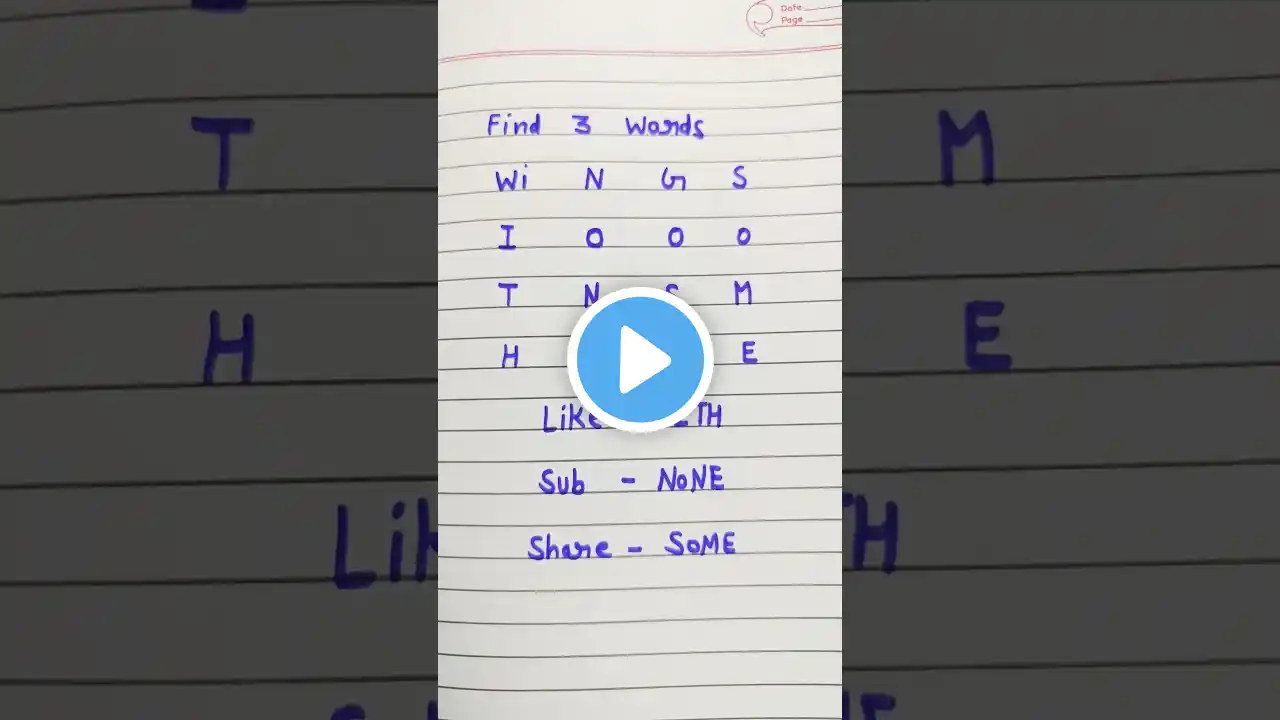 Date
Page
Find 3 Words
Wi N G S
I O O O
T N S M
H E
Like ITH
Sub - NoNE
Share - SoME
T M
H E
Lik TH